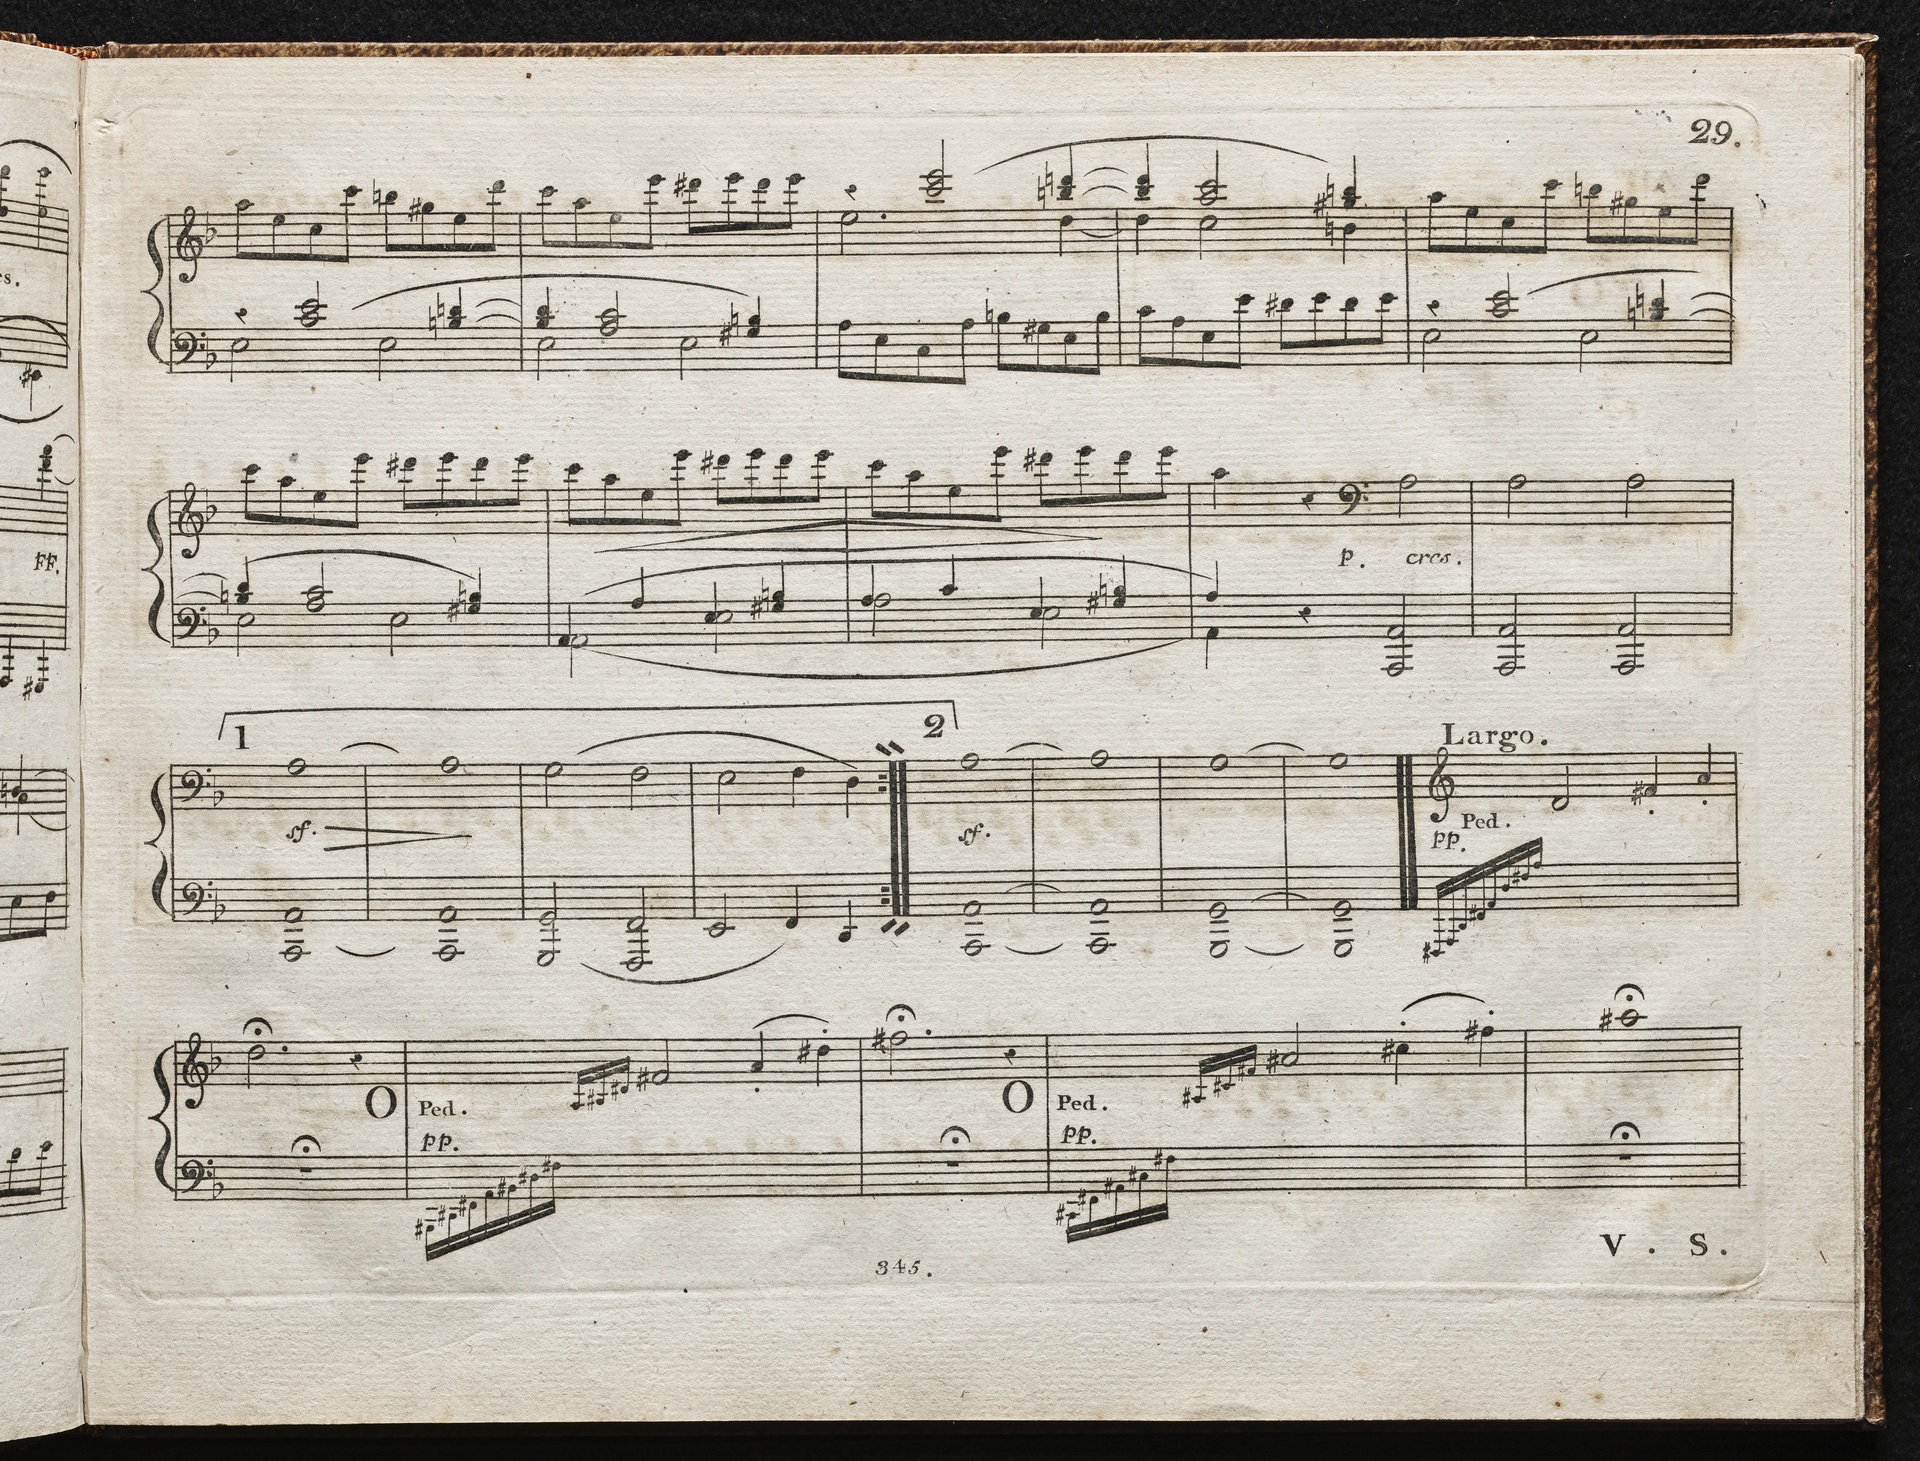 29.
es.
FF.
p. cres.
1 2
Largo.
sf. sf. Ped.
pp.
O Ped. O Ped.
pp. pp.
V. S.
345.